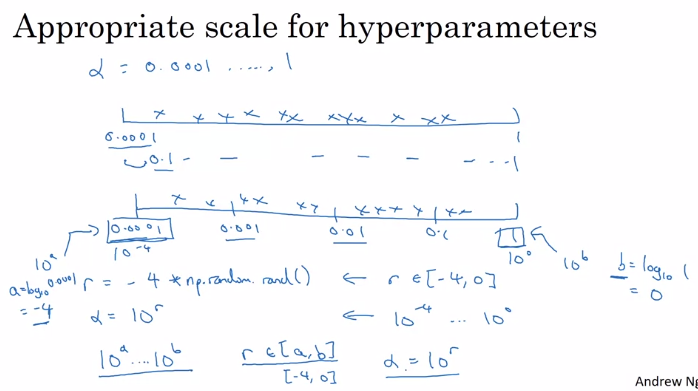 Appropriate scale for hyperparameters
α = 0.0001 ....., 1
0.0001 1
0.1 - - - - - - - - - 1
0.0001 0.001 0.01 0.1 1
10^-4 10^0
10^a 10^b
a = log₁₀ 0.0001 r = -4 * np.random.rand() ← r ∈ [-4, 0] b = log₁₀ 1
= -4 = 0
α = 10^r ← 10^-4 ... 10^0
10^a .... 10^b r ∈ [a, b] α = 10^r
[-4, 0]
Andrew Ng